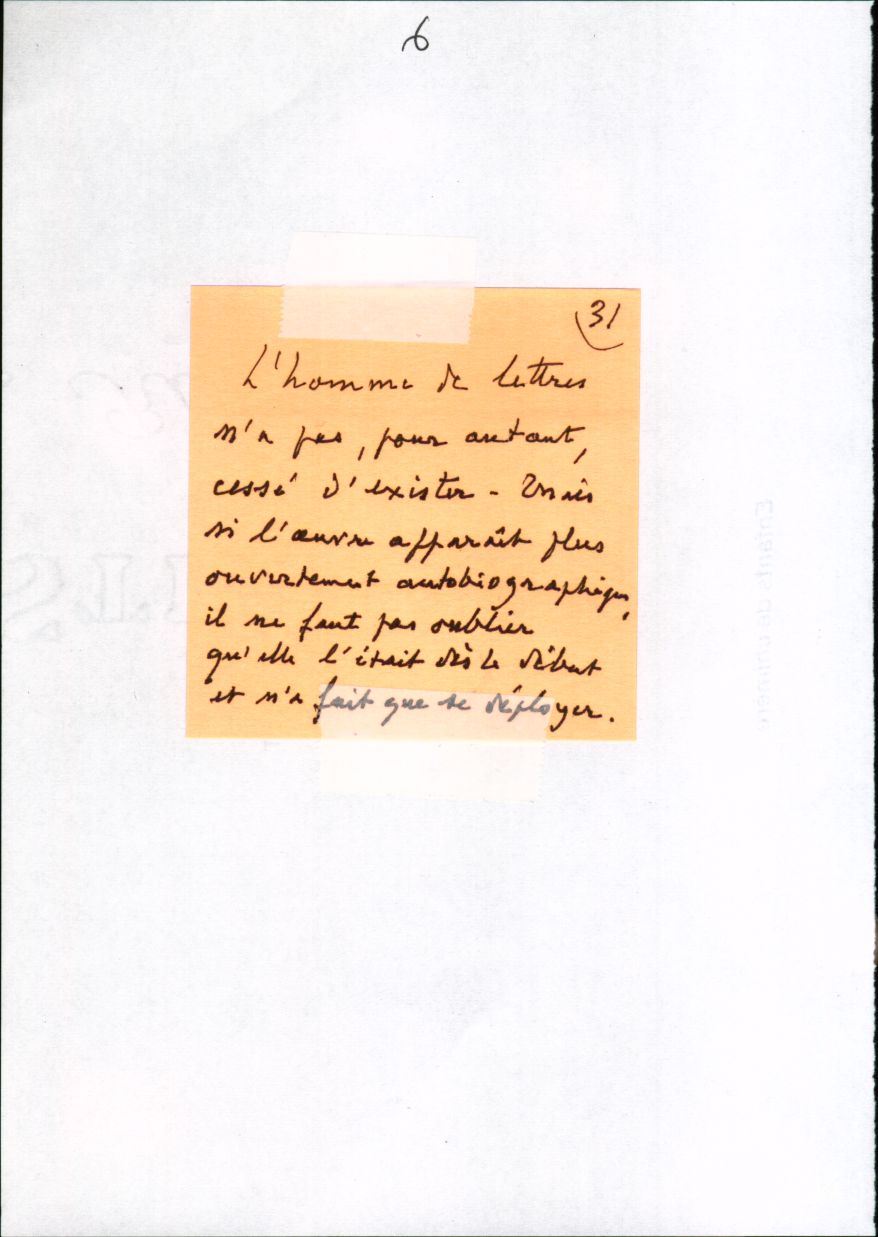 6
31
L'homme de lettres
n'a pas, pour autant,
cessé d'exister - Mais
si l'œuvre apparaît plus
ouvertement autobiographique,
il ne faut pas oublier
qu'elle l'était dès le début
et n'a fait que se déployer.